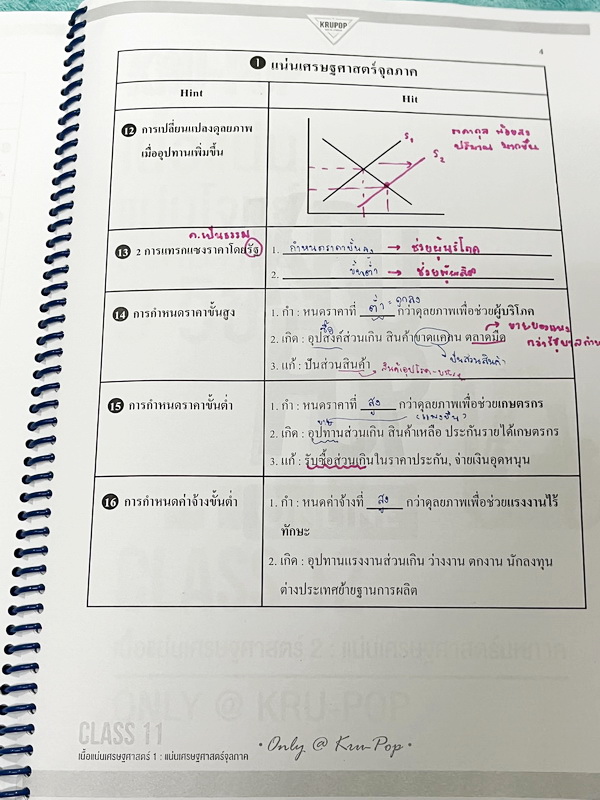 KRUPOP
4
1 แน่นเศรษฐศาสตร์จุลภาค
Hint
Hit
12 การเปลี่ยนแปลงดุลยภาพ
เมื่ออุปทานเพิ่มขึ้น
S1
S2
ราคาดุล น้อยลง
ปริมาณ มากขึ้น
ค.เป็นธรรม
13 2 การแทรกแซงราคาโดยรัฐ
1. กำหนดราคาขั้นสูง → ช่วยผู้บริโภค
2. ขั้นต่ำ → ช่วยผู้ผลิต
14 การกำหนดราคาขั้นสูง
1. กำ : หนดราคาที่ ต่ำ กว่าดุลยภาพเพื่อช่วยผู้บริโภค
= ถูกลง
ซื้อ
2. เกิด : อุปสงค์ส่วนเกิน สินค้าขาดแคลน ตลาดมืด
→ ขายของแพง
กว่ารัฐบาลกำหนด
3. แก้ : ปันส่วนสินค้า
ปันส่วนสินค้า
15 การกำหนดราคาขั้นต่ำ
1. กำ : หนดราคาที่ สูง กว่าดุลยภาพเพื่อช่วยเกษตรกร
ขาย
(แพงขึ้น)
2. เกิด : อุปทานส่วนเกิน สินค้าเหลือ ประกันรายได้เกษตรกร
3. แก้ : รับซื้อส่วนเกินในราคาประกัน, จ่ายเงินอุดหนุน
16 การกำหนดค่าจ้างขั้นต่ำ
1. กำ : หนดค่าจ้างที่ สูง กว่าดุลยภาพเพื่อช่วยแรงงานไร้
ทักษะ
2. เกิด : อุปทานแรงงานส่วนเกิน ว่างงาน ตกงาน นักลงทุน
ต่างประเทศย้ายฐานการผลิต
CLASS 11
เนื้อแน่นเศรษฐศาสตร์ 1 : แน่นเศรษฐศาสตร์จุลภาค
• Only @ Kru-Pop •